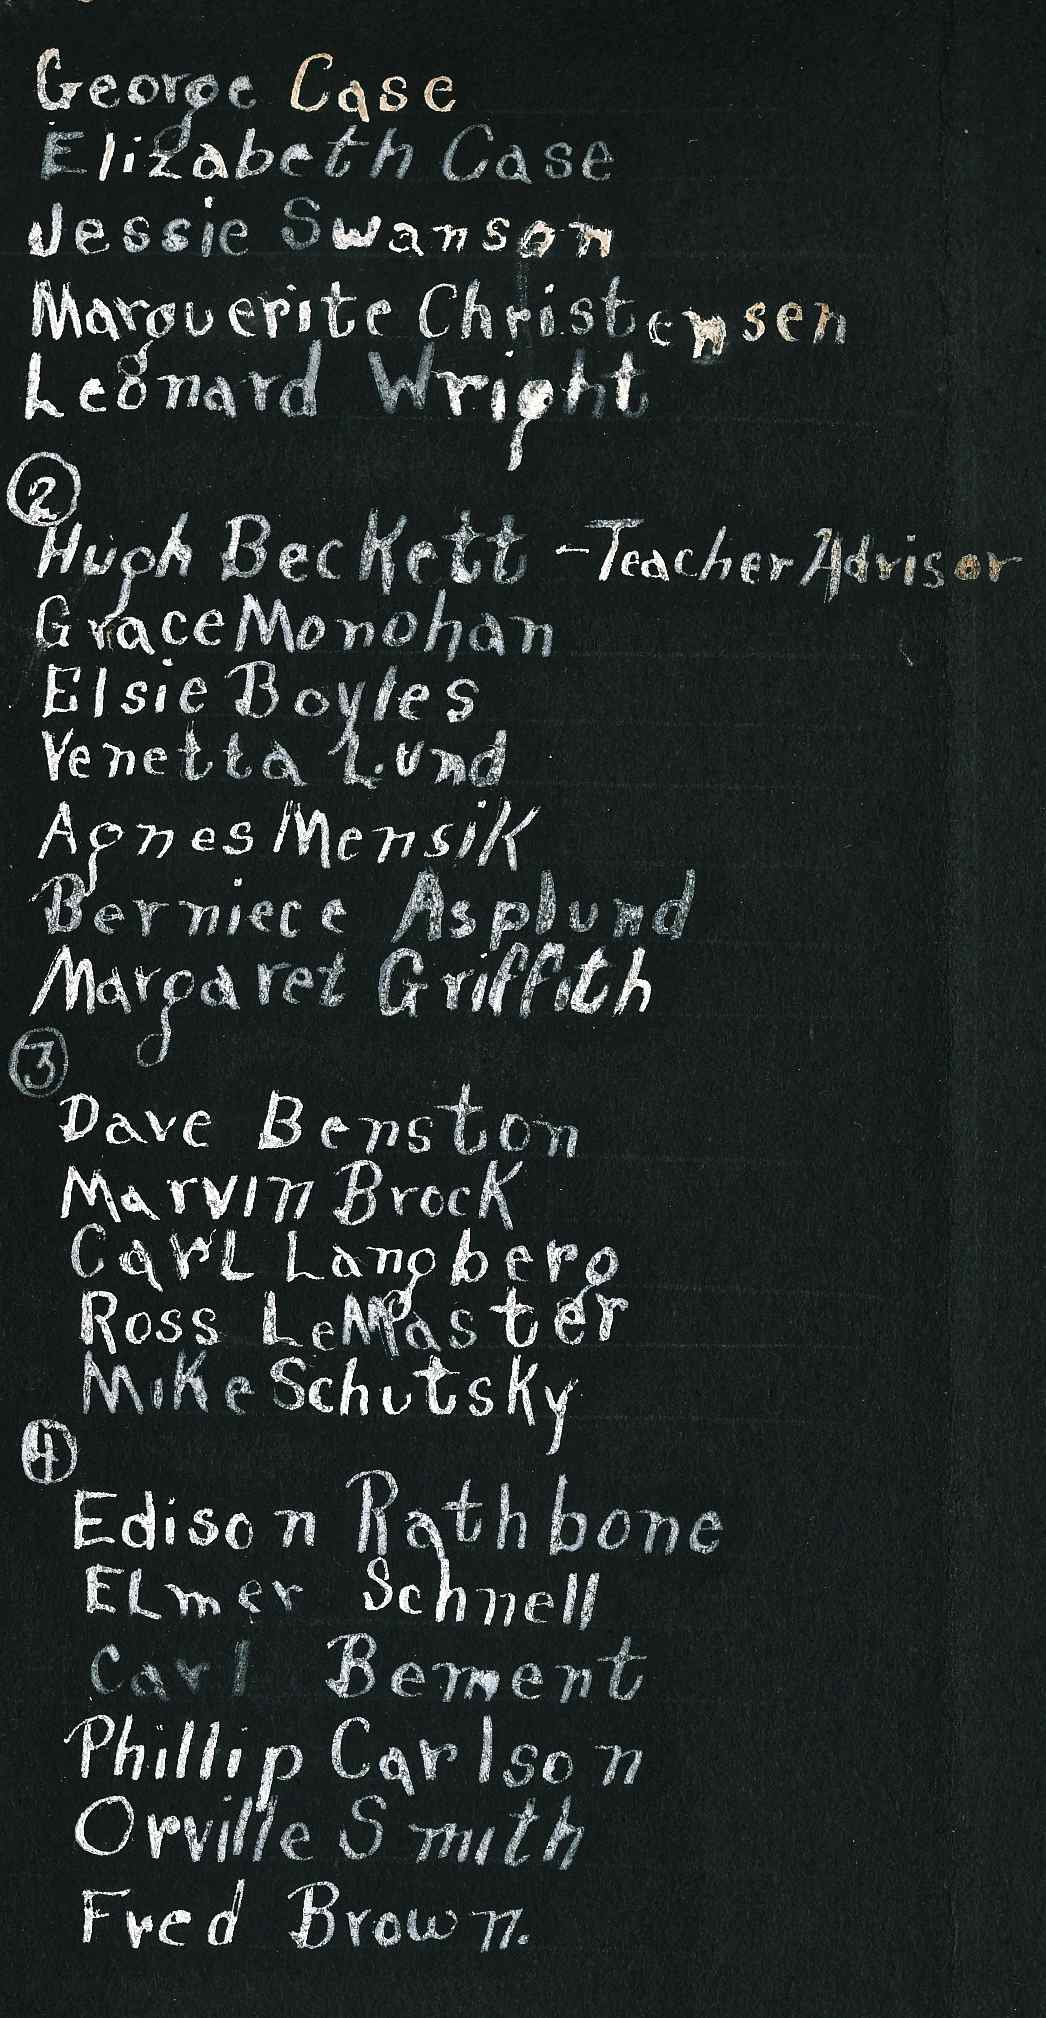 George Case
Elizabeth Case
Jessie Swanson
Marguerite Christensen
Leonard Wright
2
Hugh Beckett - Teacher Advisor
Grace Monohan
Elsie Boyles
Venetta Lund
Agnes Mensik
Berniece Asplund
Margaret Griffith
3
Dave Benston
Marvin Brock
Carl Langberg
Ross LeMaster
Mike Schutsky
4
Edison Rathbone
Elmer Schnell
Carl Bement
Phillip Carlson
Orville Smith
Fred Brown.